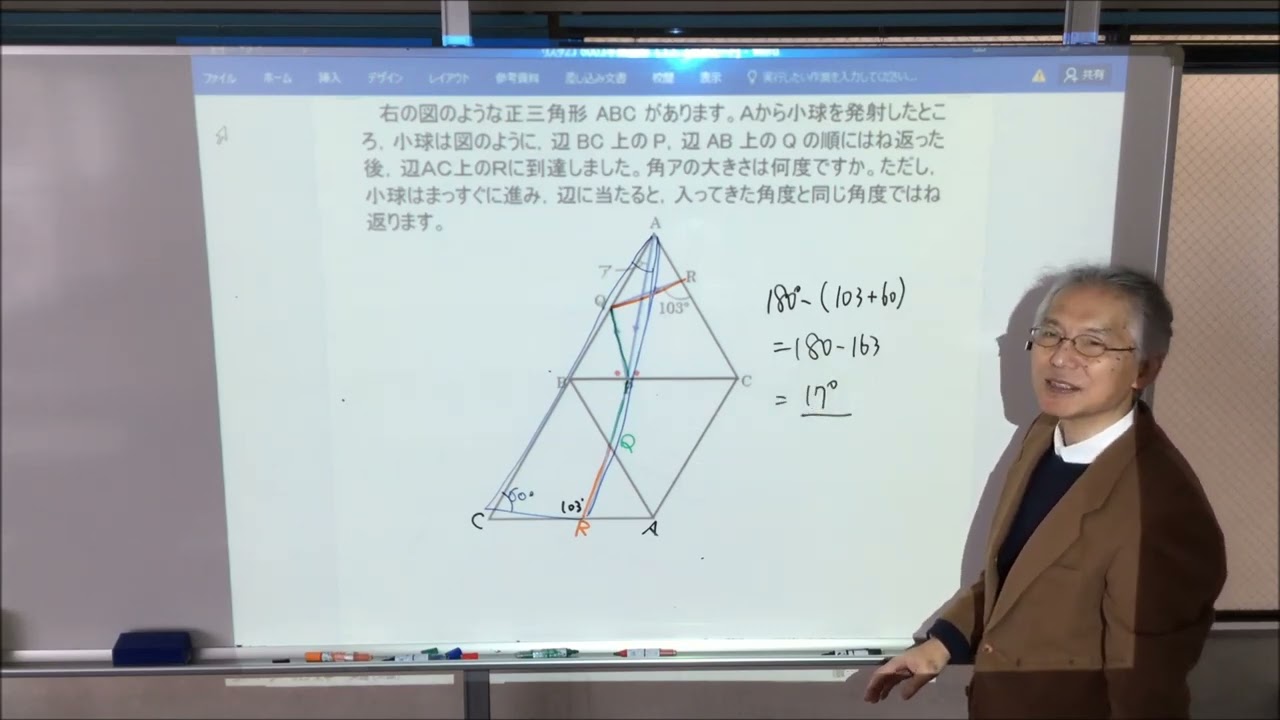 ファイル ホーム 挿入 デザイン レイアウト 参考資料 差し込み文書 校閲 表示 実行したい作業を入力してください... 共有
右の図のような正三角形 ABC があります。Aから小球を発射したとこ
ろ，小球は図のように，辺 BC 上の P，辺 AB 上の Q の順にはね返った
後，辺AC上のRに到達しました。角アの大きさは何度ですか。ただし，
小球はまっすぐに進み，辺に当たると，入ってきた角度と同じ角度ではね
返ります。
A
ア
R
Q
103°
B
P
C
Q
60°
103°
C
R
A
180°-(103+60)
=180-163
= 17°